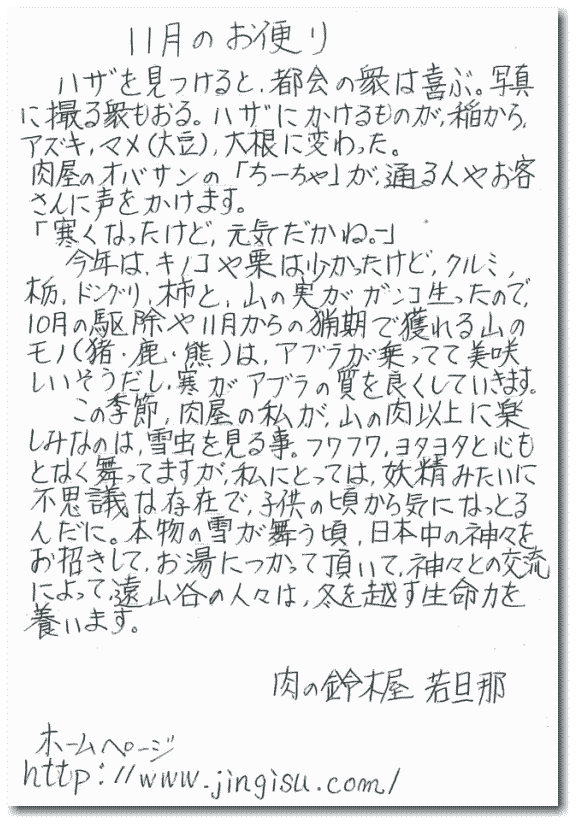 11月のお便り
ハザを見つけると、都会の衆は喜ぶ。写真
に撮る衆もおる。ハザにかけるものが、稲から、
アズキ、マメ(大豆)、大根に変わった。
肉屋のオバサンの「ちーちゃ」が、通る人やお客
さんに声をかけます。
「寒くなったけど、元気だかね。」
今年は、キノコや栗は少かったけど、クルミ、
栃、ドングリ、柿と、山の実がガンコ生ったので、
10月の駆除や11月からの猟期で獲れる山の
モノ(猪・鹿・熊)は、アブラが乗ってて美味
しいそうだし、寒がアブラの質を良くしていきます。
この季節、肉屋の私が、山の肉以上に楽
しみなのは、雪虫を見る事。フワフワ、ヨタヨタと心も
となく舞ってますが、私にとっては、妖精みたいに
不思議な存在で、子供の頃から気になっとる
んだに。本物の雪が舞う頃、日本中の神々を
お招きして、お湯につかって頂いて、神々との交流
によって、遠山谷の人々は、冬を越す生命力を
養います。
肉の鈴木屋 若旦那
ホームページ
http://www.jingisu.com/